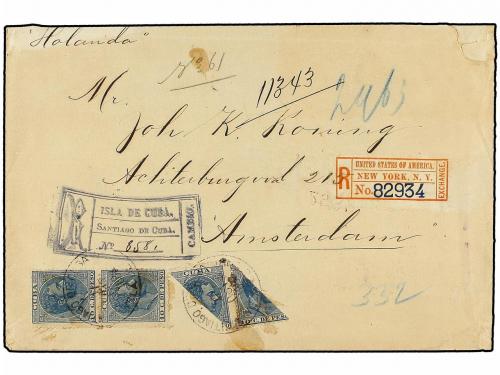 "Holanda"
No 61
11343
Mr.
Joh K. Koning
Achterburgwal 213
Amsterdam
R
UNITED STATES OF AMERICA.
NEW YORK, N. Y.
No. 82934
EXCHANGE.
ISLA DE CUBA.
SANTIAGO DE CUBA.
No 858
CAMBIO.
CUBA
CUBA
CUBA
10 C. DE PESO
332